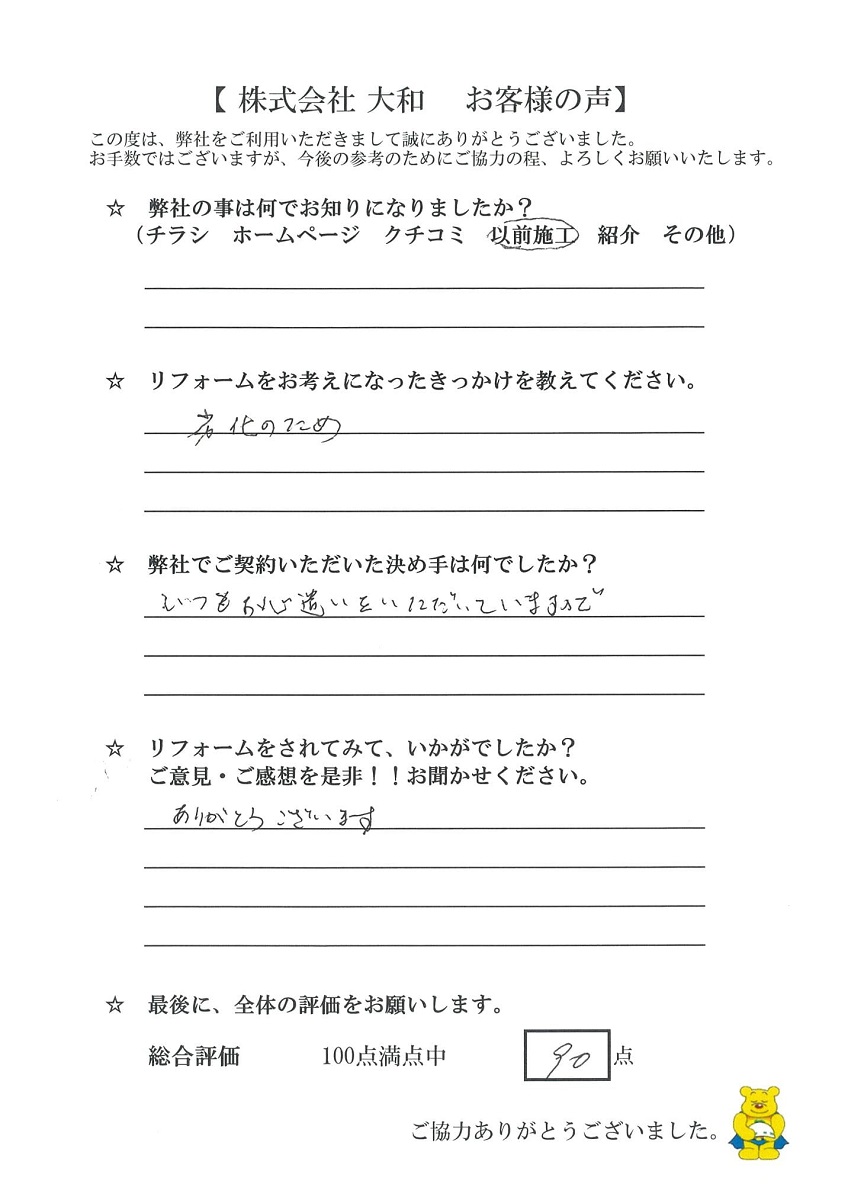 【 株式会社 大和　お客様の声】
この度は、弊社をご利用いただきまして誠にありがとうございました。
お手数ではございますが、今後の参考のためにご協力の程、よろしくお願いいたします。
☆　弊社の事は何でお知りになりましたか？
（チラシ　ホームページ　クチコミ　以前施工　紹介　その他）
☆　リフォームをお考えになったきっかけを教えてください。
劣化のため
☆　弊社でご契約いただいた決め手は何でしたか？
いつもお心遣いをいただいていますので
☆　リフォームをされてみて、いかがでしたか？
ご意見・ご感想を是非！！お聞かせください。
ありがとうございます
☆　最後に、全体の評価をお願いします。
総合評価　100点満点中　90点
ご協力ありがとうございました。